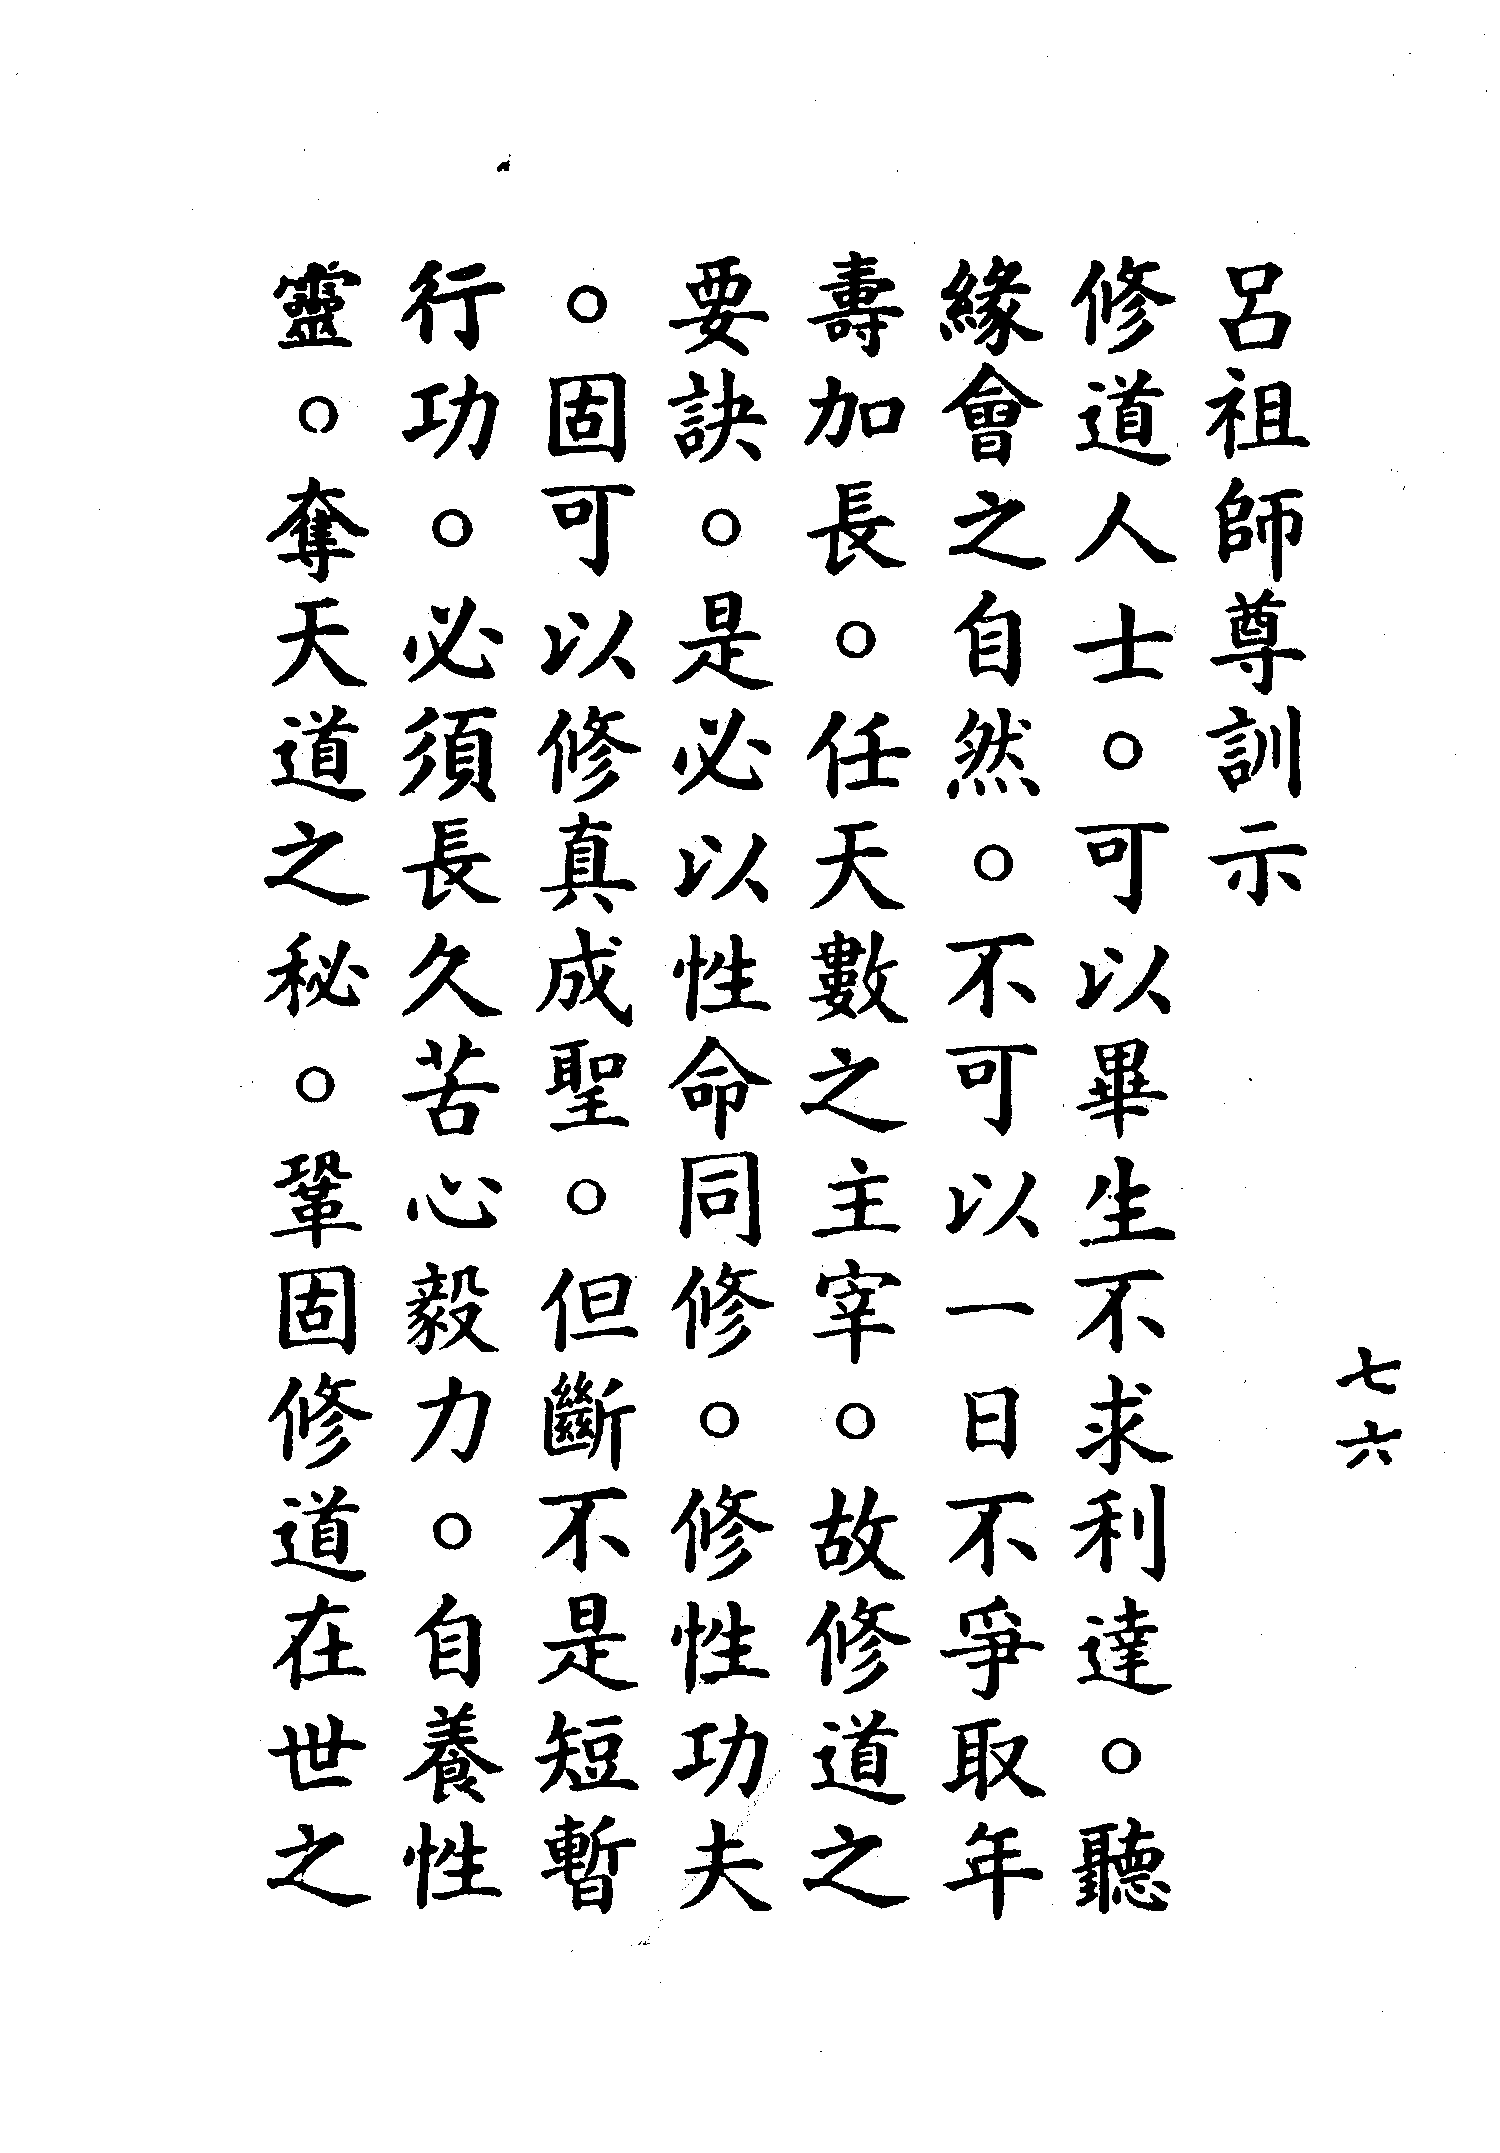 七六
呂祖師尊訓示
修道人士。可以畢生不求利達。聽
緣會之自然。不可以一日不爭取年
壽加長。任天數之主宰。故修道之
要訣。是必以性命同修。修性功夫
。固可以修真成聖。但斷不是短暫
行功。必須長久苦心毅力。自養性
靈。奪天道之秘。鞏固修道在世之